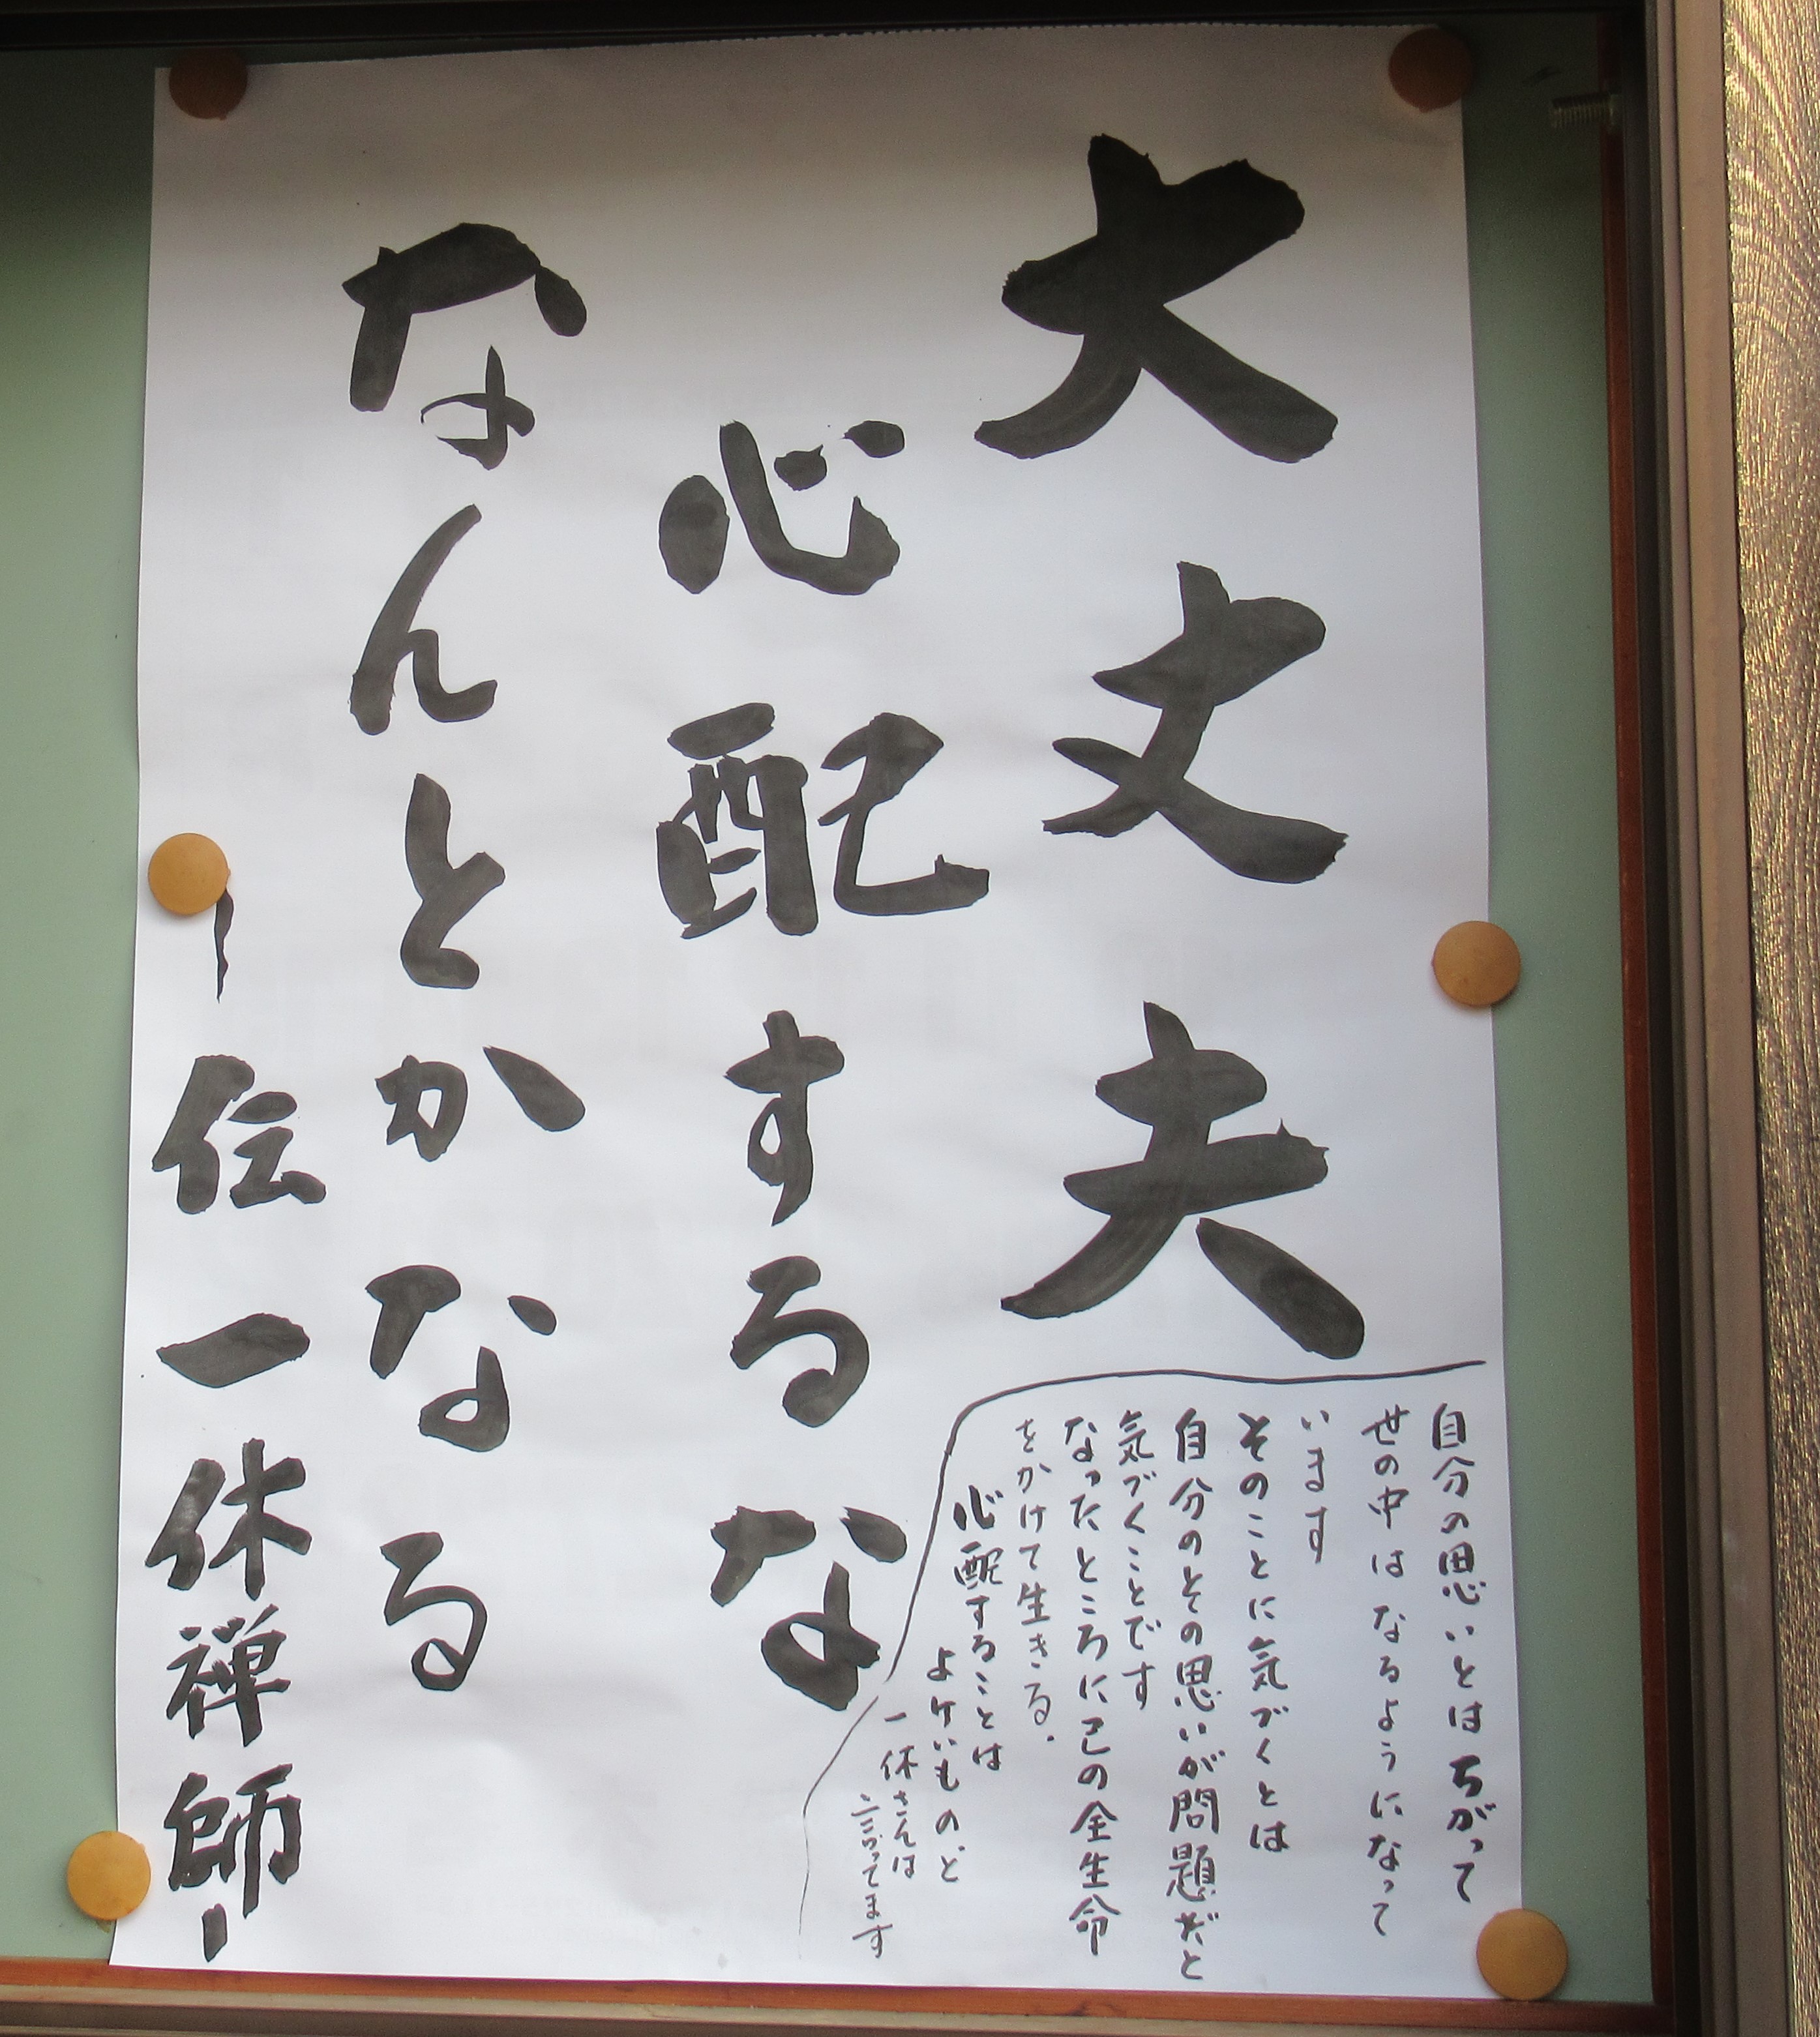 大丈夫
心配するな
なんとかなる
ー伝一休禅師ー
自分の思いとはちがって
世の中はなるようになって
います
そのことに気づくとは
自分のその思いが問題だと
気づくことです
なったところに己の全生命
をかけて生きる.
心配することは
よけいものと
一休さんは
言ってます